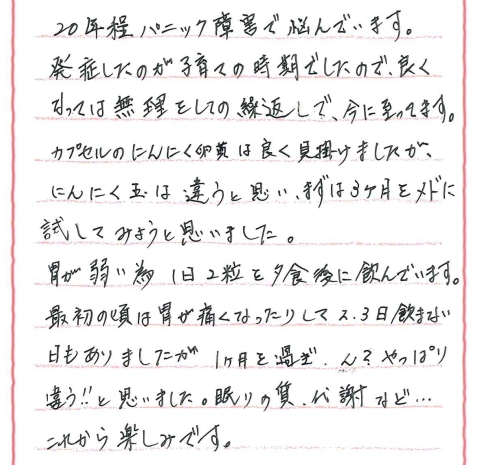 20年程パニック障害で悩んでいます。
発症したのが子育ての時期でしたので、良く
なっては無理をしての繰返しで、今に至ってます。
カプセルのにんにく卵黄は良く見掛けましたが、
にんにく玉は違うと思い、まずは3ヶ月をメドに
試してみようと思いました。
胃が弱い為1日2粒を夕食後に飲んでいます。
最初の頃は胃が痛くなったりして2.3日飲まない
日もありましたが1ヶ月を過ぎ、ん?やっぱり
違う!!と思いました。眠りの質、代謝など…
これから楽しみです。